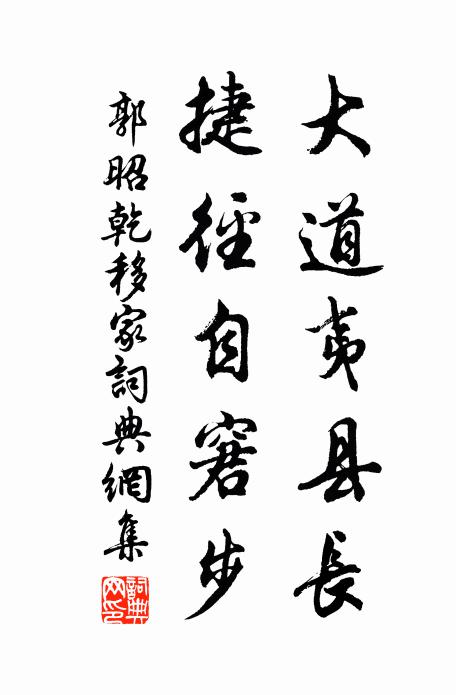 大道夷县長
捷徑自窘步
郭昭乾移家詞典網集
詞典网印